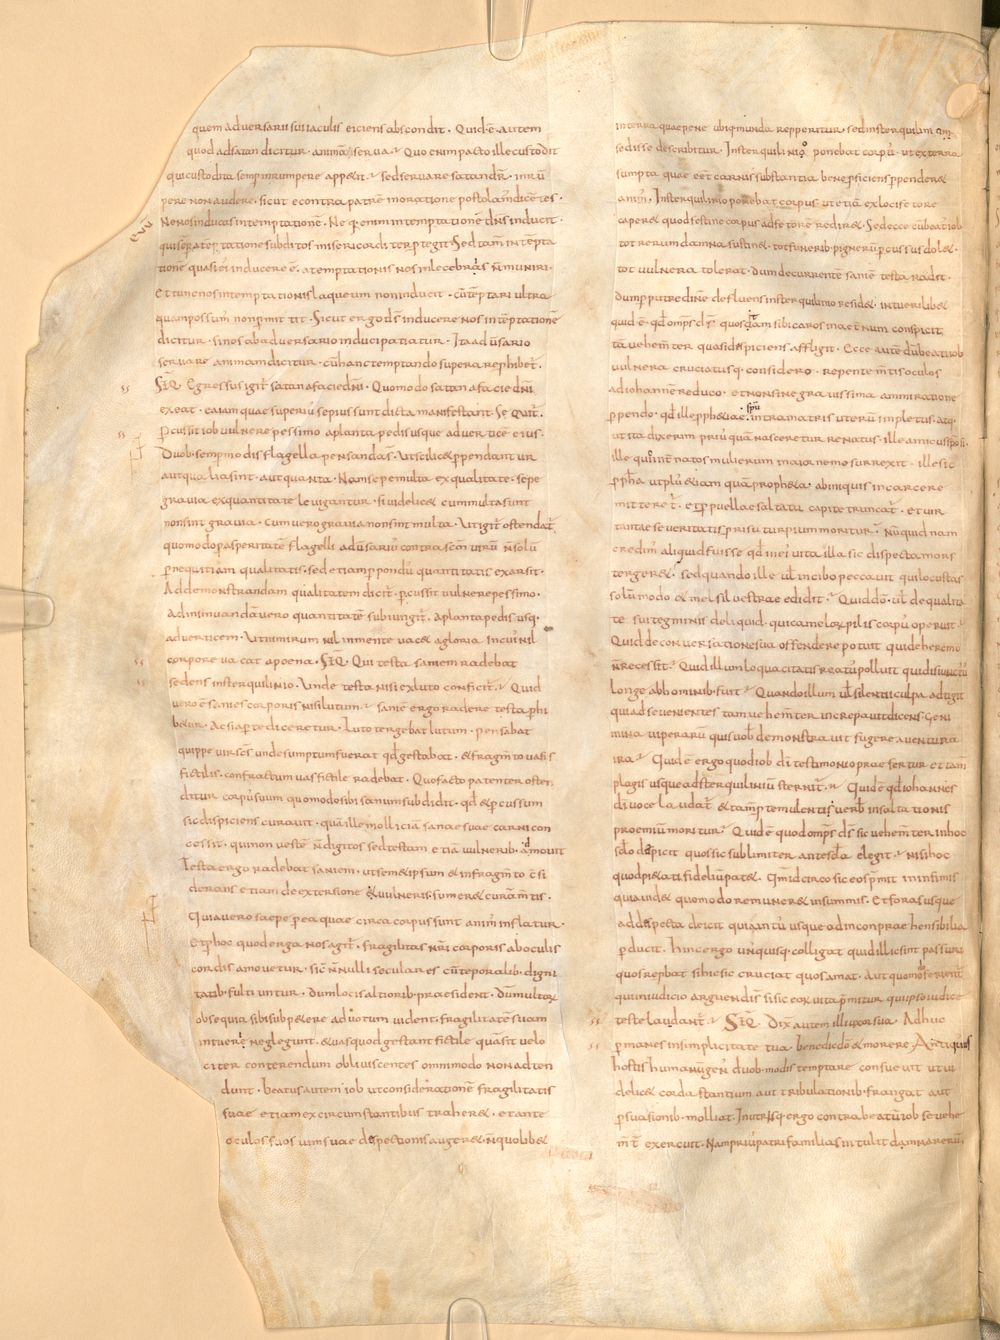 quem adversarii sui iaculis eiciens abscondit. Quid ē autem
quod ad satan dicitur. animā servaᵛ Quo enim pacto ille custodit
qui custodita semp inrumpere appetit. sed servare satan dr̄. inrū
pere non audere. sicut econtra patrē in oratione postolam dicētes.
Ne nos inducas in temptationē. Neq. enim in temptationē dn̄s inducit.
qui semp a teptatione subditos misericorditer ptegit. Sed tam̄ in tēpta
tionē quasi ei inducere ē. a temptationis nos inlecebris n̄ muniri.
Et tunc nos in temptationis laqueum non inducit. cū tēptari ultra
quam possum̄ non pmittit. Sicut ergo ds̄ inducere nos in tēptationē
dicitur. si nos ab adversario induci patiatur. Ita adūsario
servare animam dicitur. cū hanc temptando superare phibet.
SEQ. Egressus igit̄ satan a facie dn̄i. Quomodo satan a facie dn̄i
exeat. ea iam quae superiꝰ sepius sunt dicta manifestant. SEQUIT.
pcussit iob vulnere pessimo a planta pedis usque ad verticē eius.
Duob. semp modis flagella pensanda s̄. Ut scilic& ppendantur
aut qualia sint. aut quanta. Nam sepe multa ex qualitate. sepe
gravia ex quantitate levigantur. si videlic& cum multa sunt
non sint gravia. cum vero gravia non sint multa. Ut igit̄ ostendat̄
quomodo p asperitatē flagelli adūsariꝰ contra scm̄ virū n̄ solū
p nequitiam qualitatis. sed etiam p pondꝰ quantitatis exarsit.
Ad demonstrandam qualitatem dicit̄. pcussit vulnere pessimo.
Ad insinuandā vero quantitatē subiungit. a planta pedis usq.
ad verticem. Ut nimirum nil in mente vac& a gloria. in cuiꝰ nil
corpore vacat a poena. SEQ. Qui testa saniem radebat
sedens in sterquilinio. Unde testa nisi ex luto conficit̄. Quid
vero ē sanies corporis nisi lutum. saniē ergo radere testa phi
b&ur. Ac si apte diceretur. Luto tergebat lutum. Pensabat
quippe vir scs̄ unde sumptum fuerat qd̄ gestabat. & fragm̄to vasis
fictilis. confractum vas fictile radebat. Quo facto patenter osten
ditur corpꝰ suum quomodo sibi sanum subdidit. qd̄ & pcussum
sic dispiciens curavit. quā ille molliciā sanae suae carni con
cessit. qui non vestē n̄ digitos sed testam etiā vulnerib. amovit
Testa ergo radebat saniem. ut sem&ipsum & in fragm̄to c̄si
derans etiam de extersione vulneris. sumer& curā m̄tis.
Quia vero saepe p ea quae circa corpus sunt animꝰ inflatur.
et p hoc quod erga nos agit̄. fragilitas n̄ri corporis ab oculis
cordis amovetur. sic n̄nulli seculares cū teporalib. digni
tatib. fulti untur. dum locis altiorib. praesident. dū multoꝝ
obsequia sibi subp&ere ad votum vident. fragilitatē suam
intueri neglegunt. & vas quod gestant fictile quā sit velo
citer conterendum obliviscentes ommodo non adten
dunt. beatus autem iob ut considerationē fragilitatis
suae etiam ex circumstantibus traher&. et ante
oculos suos vim suae despectionis auger&. n̄ quolib&
in terra quae pene ubiq. munda repperitur. sed in sterquilinio
sedisse describitur. In sterquilinio ponebat corpꝰ. ut ex terra
sumpta quae e&t carnis substantia bene pficiens ppender&
animꝰ. In sterquilinio ponebat corpus ut etiā ex loci fetore
caper& quod festine corpus ad fetorē redir&. Sed ecce cū beatꝰ iob
tot rerum damna sustin&. tot funerib. pignerū pcussus dol&.
tot vulnera tolerat. dum decurrentē saniē testa radit.
dum p putredinē defluens in sterquilinio resid&. intueri lib&
quid ē qd̄ omps̄ ds̄. quos quam sibi caros in aet̄num conspicit
tā vehem̄ter quasi despiciens affligit. Ecce autē dū beati iob
vulnera cruciatusq. considero. repente m̄tis oculos
ad iohannē reduco. et non sine gravissima ammiratione
ppendo. qd̄ ille pph&iae spū intra matris uterū impletus. atq.
ut ita dixerim priꝰ quā nasceretur renatus. ille amicus sponsi.
ille quo int̄ natos mulierum maior nemo surrexit. ille sic
ppha ut plꝰ &iam quā proph&a. ab iniquis in carcere
mittet̄. et p puellae saltatū capite truncat̄. et vir
tantae severitatis p risu turpium moritur. Nūquid nam
credim̄ aliquid fuisse qd̄ in eiꝰ vita illa sic dispecta mors
terger&. sed quando ille vl̄ in cibo peccavit qui locustas
solū modo & mel silvestrae edidit. Quid dō. vl̄ de qualita
te sui tegminis deliquid. qui camelorꝫ pilis corpꝰ operuit
Quid de conversatione sua offendere potuit qui de heremo
n̄ recessit. Quid illum loquacitatis reatꝰ polluit qui disiunctꝰ
longe ab hominib. fuit. Quando illum vl̄ silentii culpa adtigit
qui ad se venientes tam vehem̄ter increpavit dicens. Geni
mina viperarū quis vob̄ demonstravit fugere a ventura
ira. Quid ē ergo quod iob di testimonio praefertur et tam̄
plagis usque ad sterquilinium sternit̄. Quid ē qd̄ iohannes
di voce laudat̄ & tam̄ p temulentis verb̄ in saltationis
proemiū moritur. Quid ē quod omps̄ ds̄ sic vehem̄ter in hoc
sc̄lo despicit quos sic sublimiter ante scl̄a elegit. nisi hoc
quod pi&ati fideliū pat&. Qm̄ idcirco sic eos pmit in infimis
quia vid& quomodo remuner& in summis. Et foras usque
ad despecta deicit quia intꝰ usque ad inconprachensibilia
pducit. hinc ergo unꝰquisq. colligat quid illic sint passuri
quos reprobat si hic sic cruciat quos amat. Aut quomō ferient̄
qui in iudicio arguendi s̄ si sic eoꝝ vita pmitur qui ipso iudice
teste laudant̄. SEQ. Dix̄ autem illi uxor sua. Adhuc
pmanes in simplicitate tua benedic dō & morere. Antiquus
hostis humanū genꝰ duob. modis temptare consuevit ut vi
delic& corda stantium aut tribulationib. frangat aut
psuasionib. molliat. In utrisq. ergo contra beatū iob se vehe
m̄t̄ exercuit. Nam priꝰ patrifamilias intulit damna rerū.